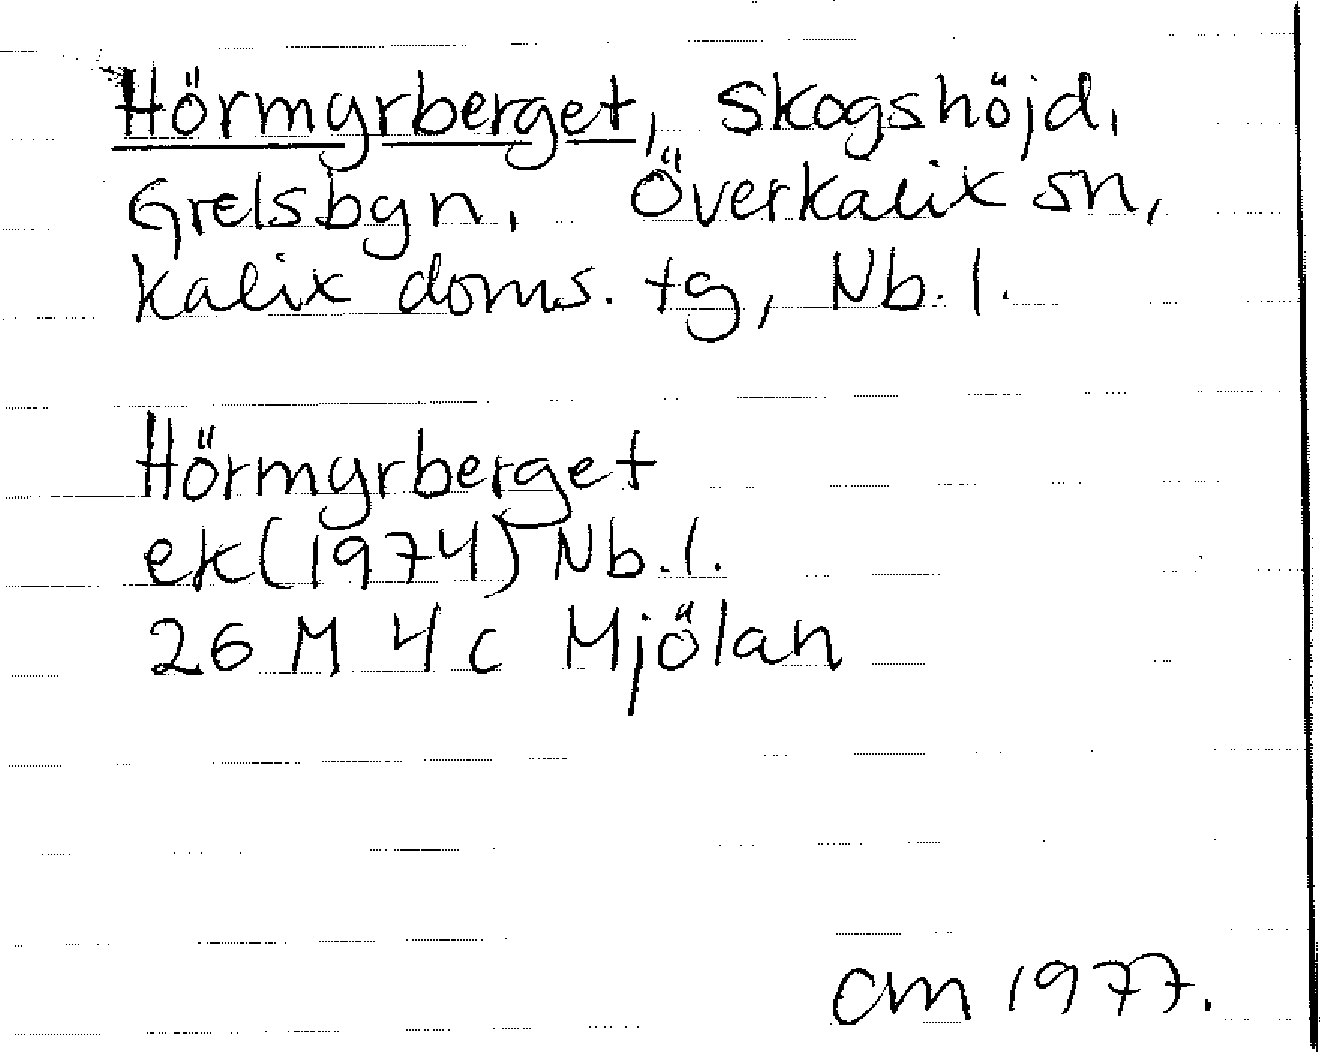 Hörmyrberget, skogshöjd,
Grelsbyn, Överkalix sn,
Kalix doms. tg, Nb. l.
Hörmyrberget
ek (1974) Nb. l.
26 M 4 c Mjölan
CM 1977.